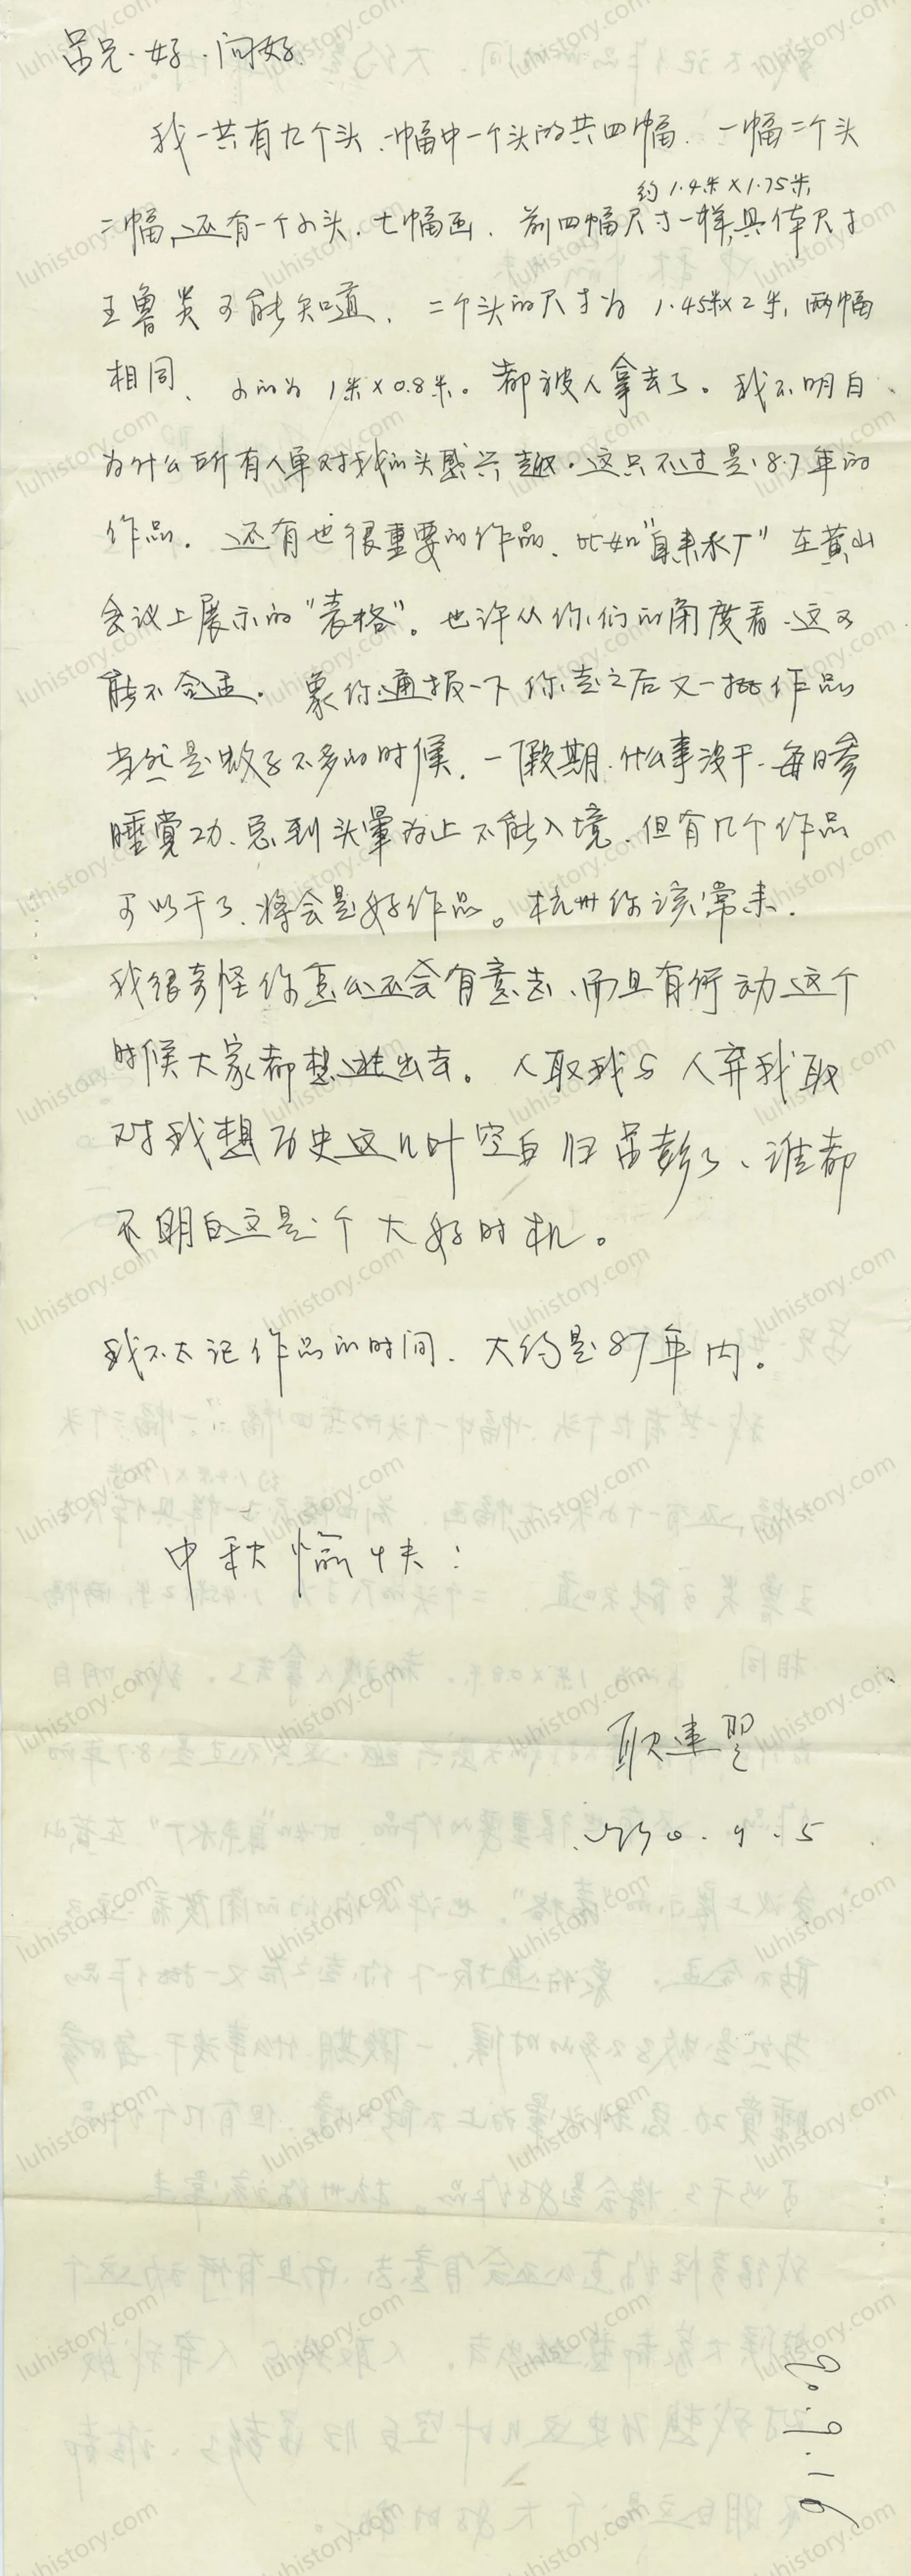 吕兄.好.问好.
我一共有九个头、一幅中一个头的共四幅、一幅二个头
约 1.4米×1.75米,
二幅,还有一个小头.七幅画、前四幅尺寸一样,具体尺寸
王鲁炎可能知道、二个头的尺寸为 1.45米×2米,两幅
相同、小的为 1米×0.8米。都被人拿去了。我不明白、
为什么所有人单对我的头感兴趣.这只不过是87年的
作品.还有也很重要的作品、比如"自来水厂"在黄山
会议上展示的"表格"。也许从你们的角度看、这可
能不合适.象你通报一下你走之后又一批作品
当然是数子不多的时候.一假期.什么事没干.每日参
睡觉功、总到头晕为止不能入境.但有几个作品
可以干了、将会是好作品。杭州你该常来.
我很奇怪你怎么还会有意去、而且有行动这个
时候大家都想逃出去。人取我与 人弃我取
对 我想历史这几叶空白归吕彭了、谁都
不明白这是个大好时机。
我不太记作品的时间、大约是87年内。
中秋愉快:
耿建翌
1990.9.5
90.9.16